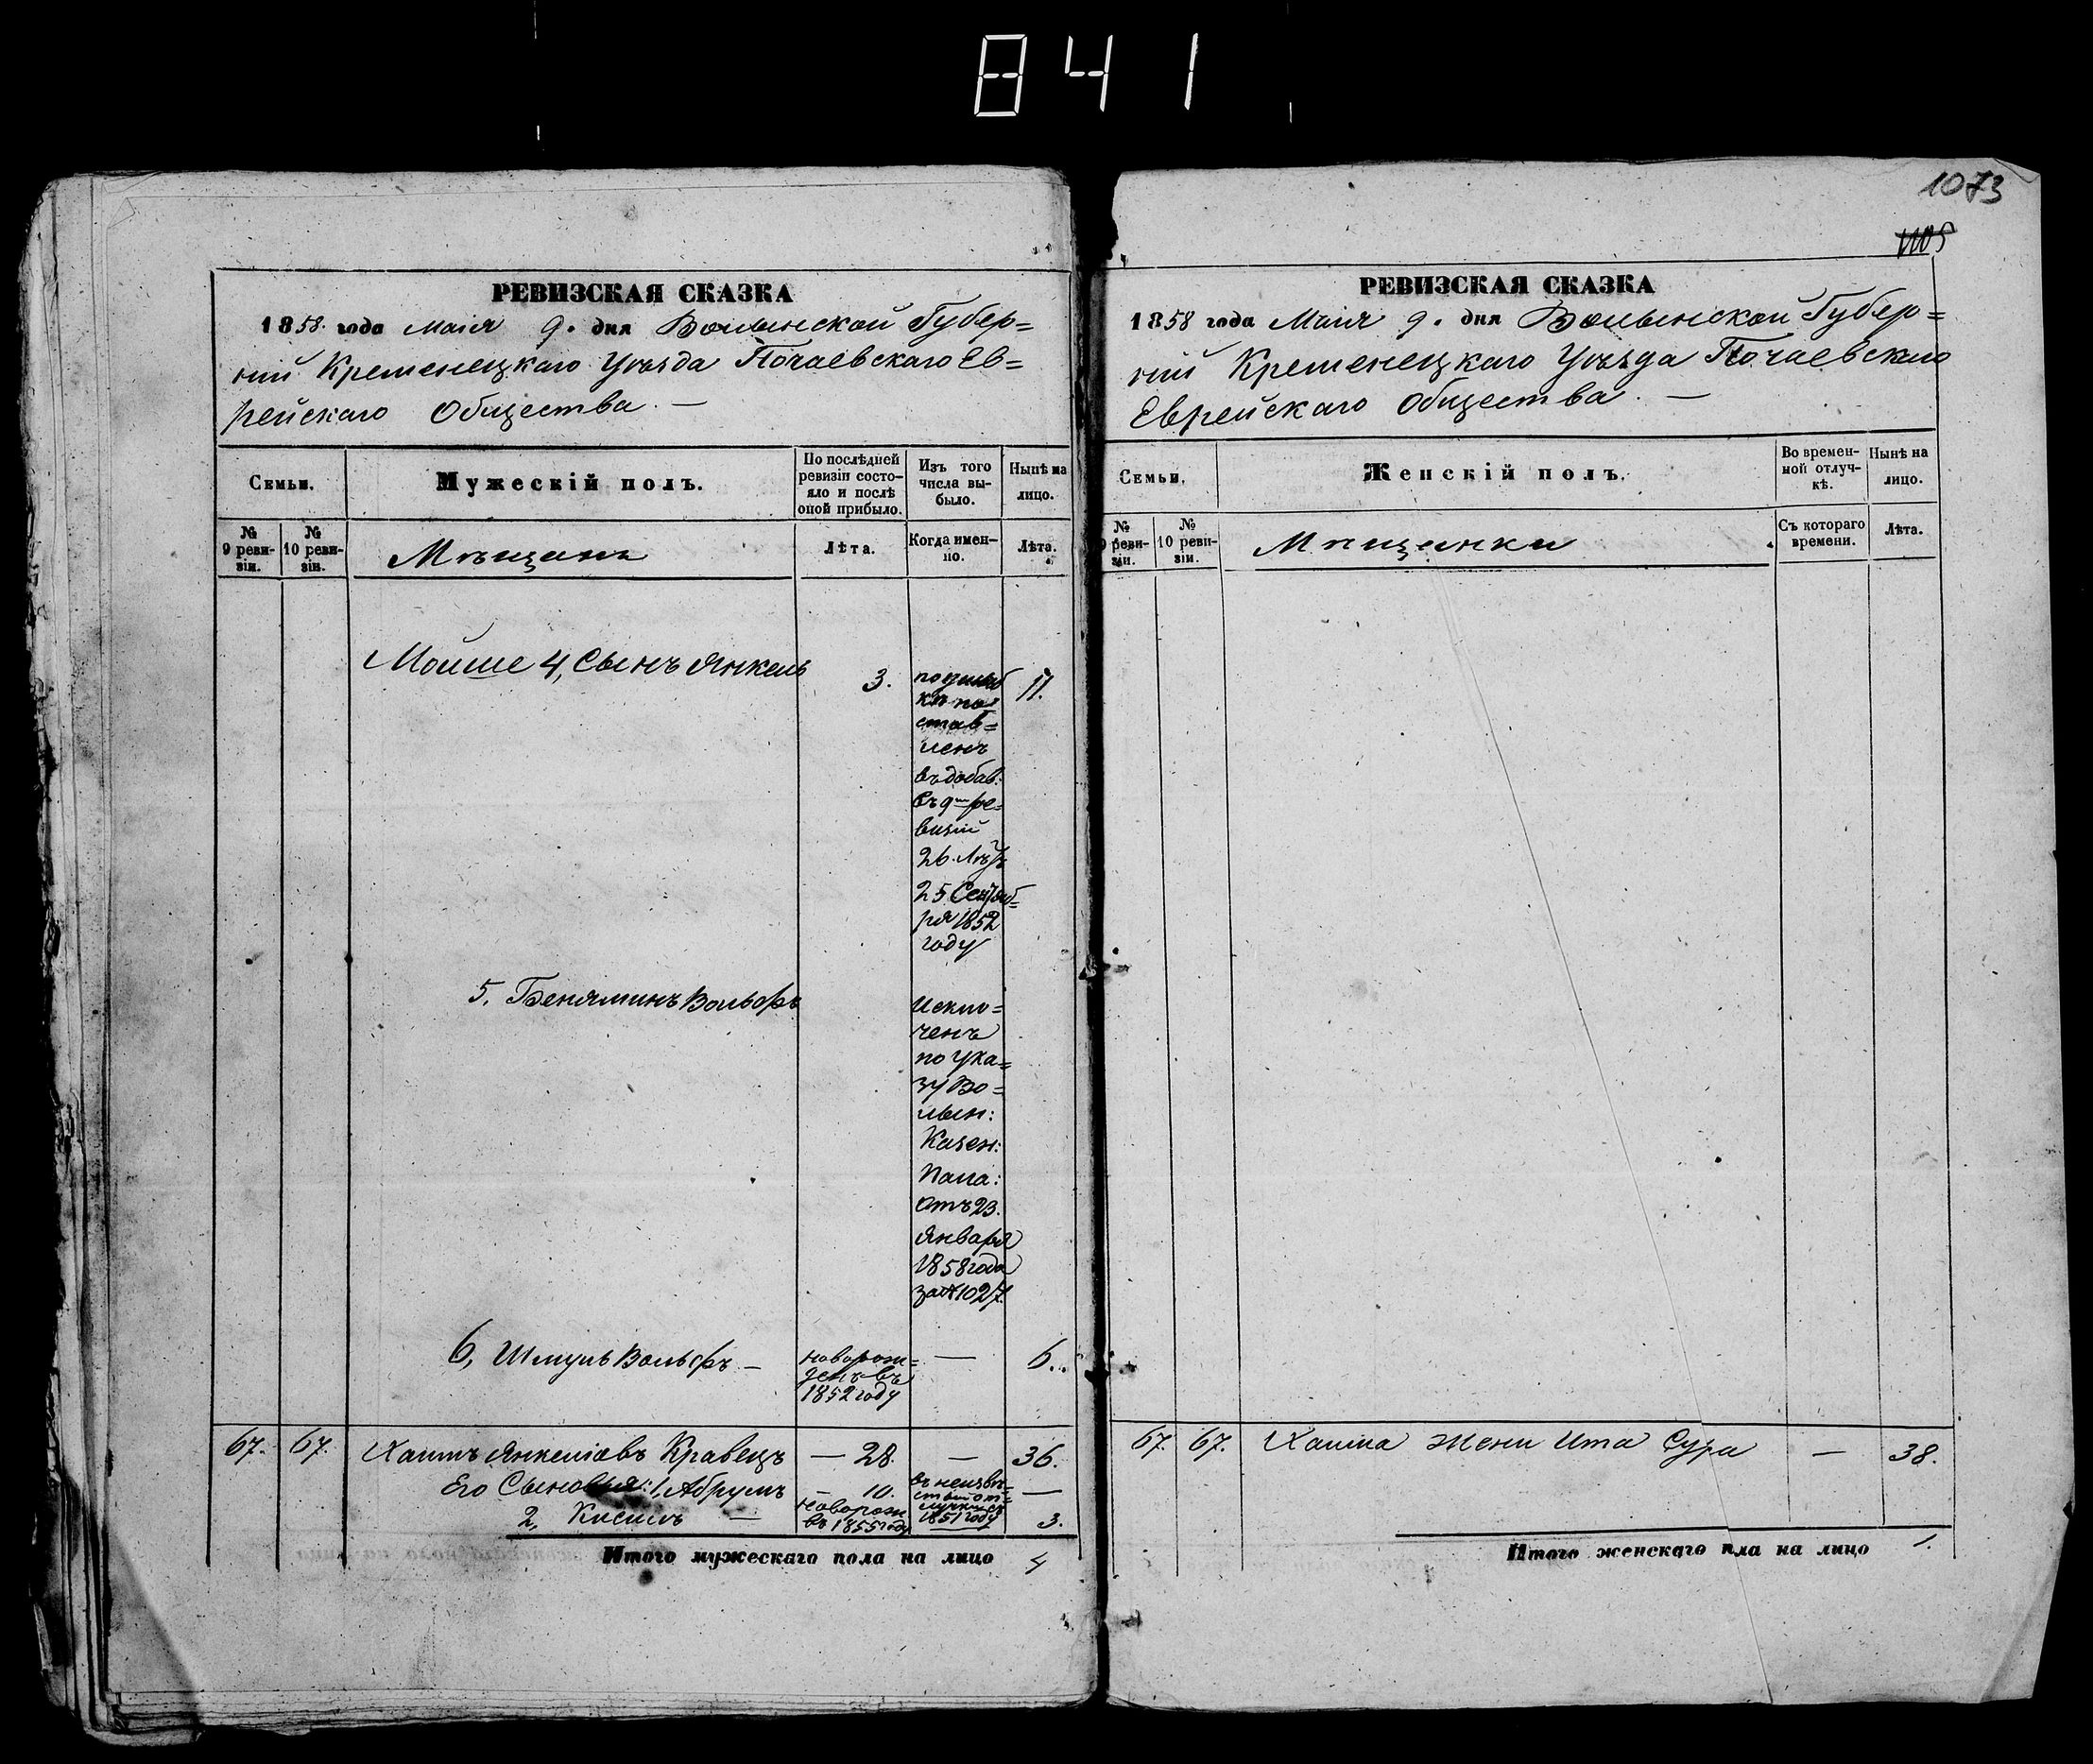 841
1073
1105
РЕВИЗСКАЯ СКАЗКА
1858. года Маія 9. дня Волынской Губер=
ніи Кременецкаго Уѣзда Почаевскаго Ев=
рейскаго Общества. —
Семьи.
Мужескій полъ.
По послѣдней
ревизіи состо-
яло и послѣ
оной прибыло.
Изъ того
числа вы-
было.
Нынѣ на
лицо.
№
9 реви-
зіи.
№
10 реви-
зіи.
Мѣщанъ
Лѣта.
Когда имен-
но.
Лѣта.
Мошие 4, Сынъ Янкель
3.
11.
став=
ленъ
въ добав.
въ 9 ре=
визіи
26. Лѣтъ
25 Сентяб=
ря 1852
году
5. Беняминъ Вольфъ
Исклю=
ченъ
по ука=
зу Во=
лын:
Казен:
Пала:
отъ 23.
Января
1858 года
за № 1027.
6, Шмуль Вольфъ —
новорож=
денъ въ
1852 году
—
6.
67. 67. Хаимъ Янкеліовъ Кравецъ — 28. — 36.
Его Сыновья: 1, Абрумъ — 10.
въ неизвѣ=
стной от=
лучкѣ съ
1851 году
—
2, Кисиль —
новорож
въ 1855 году
3.
Итого мужескаго пола на лицо 4
РЕВИЗСКАЯ СКАЗКА
1858 года Маія 9. дня Волынской Губер=
ніи Кременецкаго Уѣзда Почаевскаго
Еврейскаго Общества. —
Семьи.
Женскій полъ.
Во времен-
ной отлуч-
кѣ.
Нынѣ на
лицо.
№
9 реви-
зіи.
№
10 реви-
зіи.
Мѣщанки
Съ котораго
времени.
Лѣта.
67. 67. Хаима Жена Ита Сура — 38.
Итого женскаго пла на лицо 1.